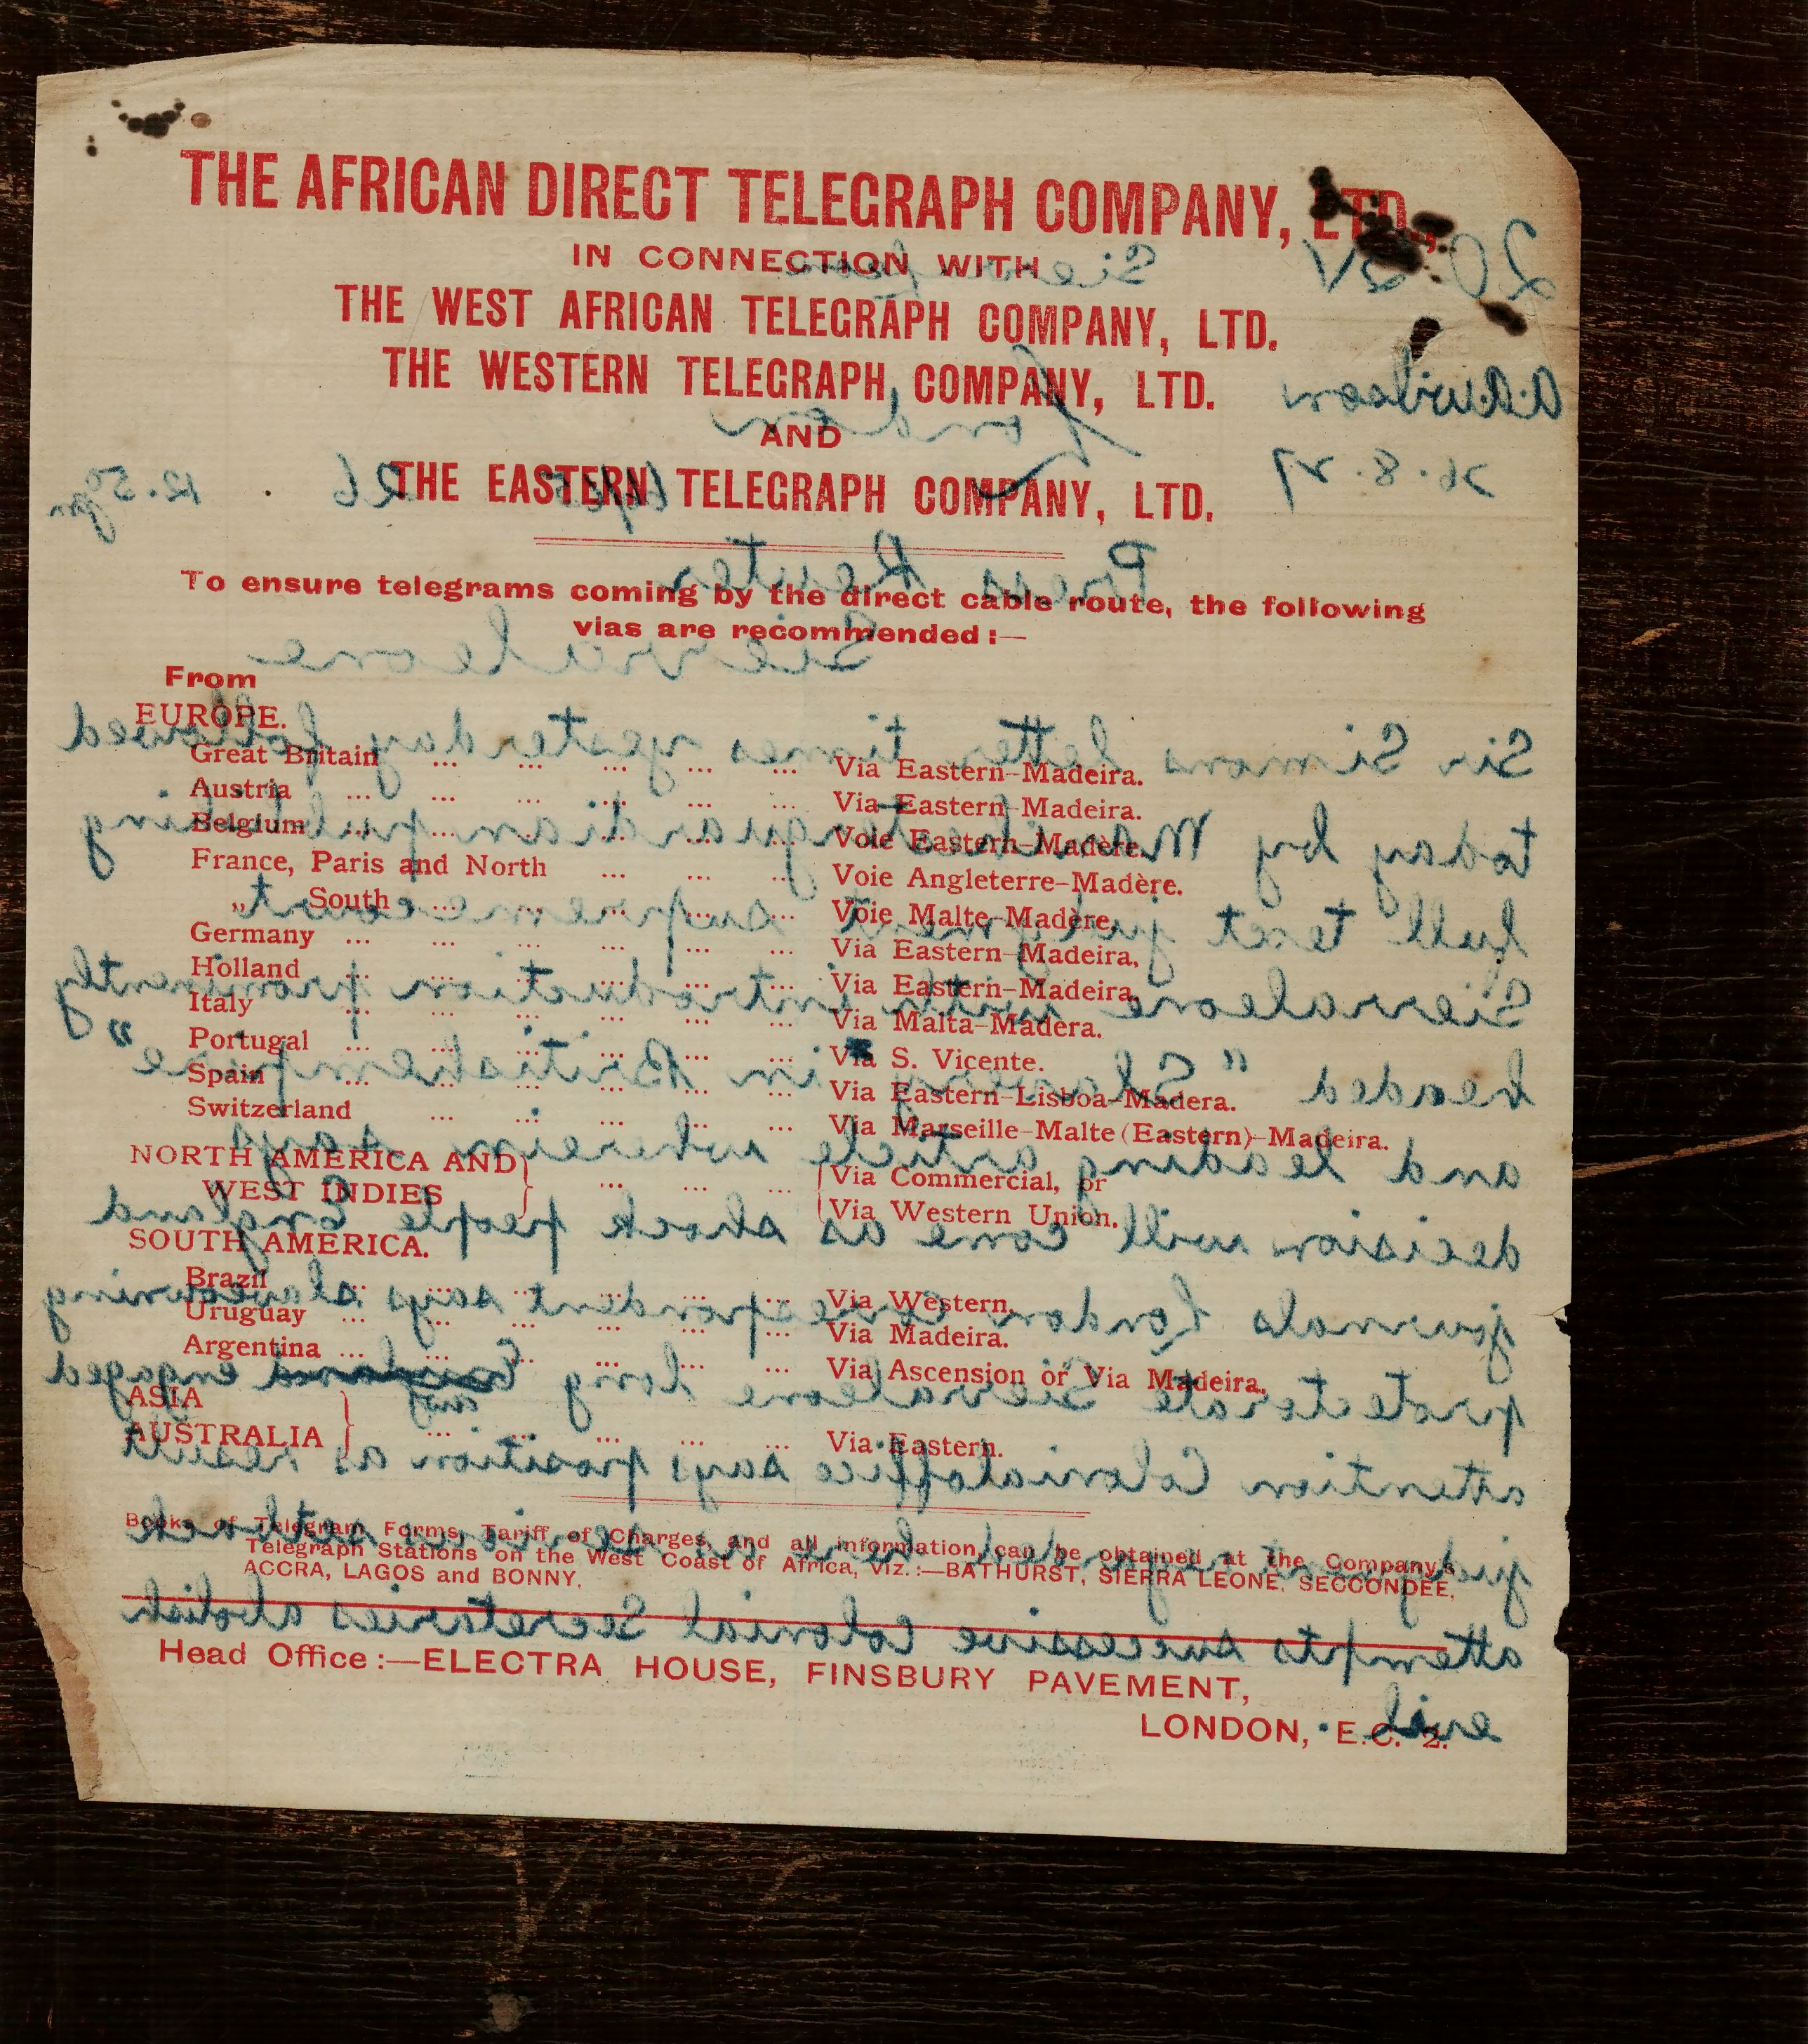 THE AFRICAN DIRECT TELEGRAPH COMPANY, LTD.,
IN CONNECTION WITH
THE WEST AFRICAN TELEGRAPH COMPANY, LTD.
THE WESTERN TELEGRAPH COMPANY, LTD.
AND
THE EASTERN TELEGRAPH COMPANY, LTD.
To ensure telegrams coming by the direct cable route, the following
vias are recommended :—
From
EUROPE.
Great Britain ... ... ... ... ... Via Eastern-Madeira.
Austria ... ... ... ... ... ... Via Eastern-Madeira.
Belgium ... ... ... ... ... ... Voie Eastern-Madère.
France, Paris and North ... ... ... Voie Angleterre-Madère.
„ South ... ... ... ... ... Voie Malte-Madère.
Germany ... ... ... ... ... ... Via Eastern-Madeira.
Holland ... ... ... ... ... ... Via Eastern-Madeira.
Italy ... ... ... ... ... ... Via Malta-Madera.
Portugal ... ... ... ... ... ... Via S. Vicente.
Spain ... ... ... ... ... ... Via Eastern-Lisboa-Madera.
Switzerland ... ... ... ... ... Via Marseille-Malte (Eastern)-Madeira.
NORTH AMERICA AND
WEST INDIES ... ... ... Via Commercial, or
Via Western Union.
SOUTH AMERICA.
Brazil ... ... ... ... ... ... Via Western.
Uruguay ... ... ... ... ... ... Via Madeira.
Argentina ... ... ... ... ... ... Via Ascension or Via Madeira.
ASIA
AUSTRALIA ... ... ... ... ... Via Eastern.
Books of Telegram Forms, Tariff of Charges, and all information, can be obtained at the Company's
Telegraph Stations on the West Coast of Africa, viz.:—BATHURST, SIERRA LEONE, SECCONDEE,
ACCRA, LAGOS and BONNY.
Head Office :—ELECTRA HOUSE, FINSBURY PAVEMENT,
LONDON, E.C. 2.
A.D. Wilson
London
26.8.27
26
12.50 pm
Press Reuter
Sierraleone
Sir Simons letter times yesterday followed
today by Manchesterguardian publishing
full text judgment supreme court
Sierraleone with introduction prominently
headed "Slavery in Britishempire"
and leading article wherein says
decision will come as shock people England
journals London correspondent says slaveowning
protectorate Sierraleone long engaged
attention Colonialoffice says position as result
judgment regarded here as serious setback
attempts successive Colonial Secretaries abolish
evil.